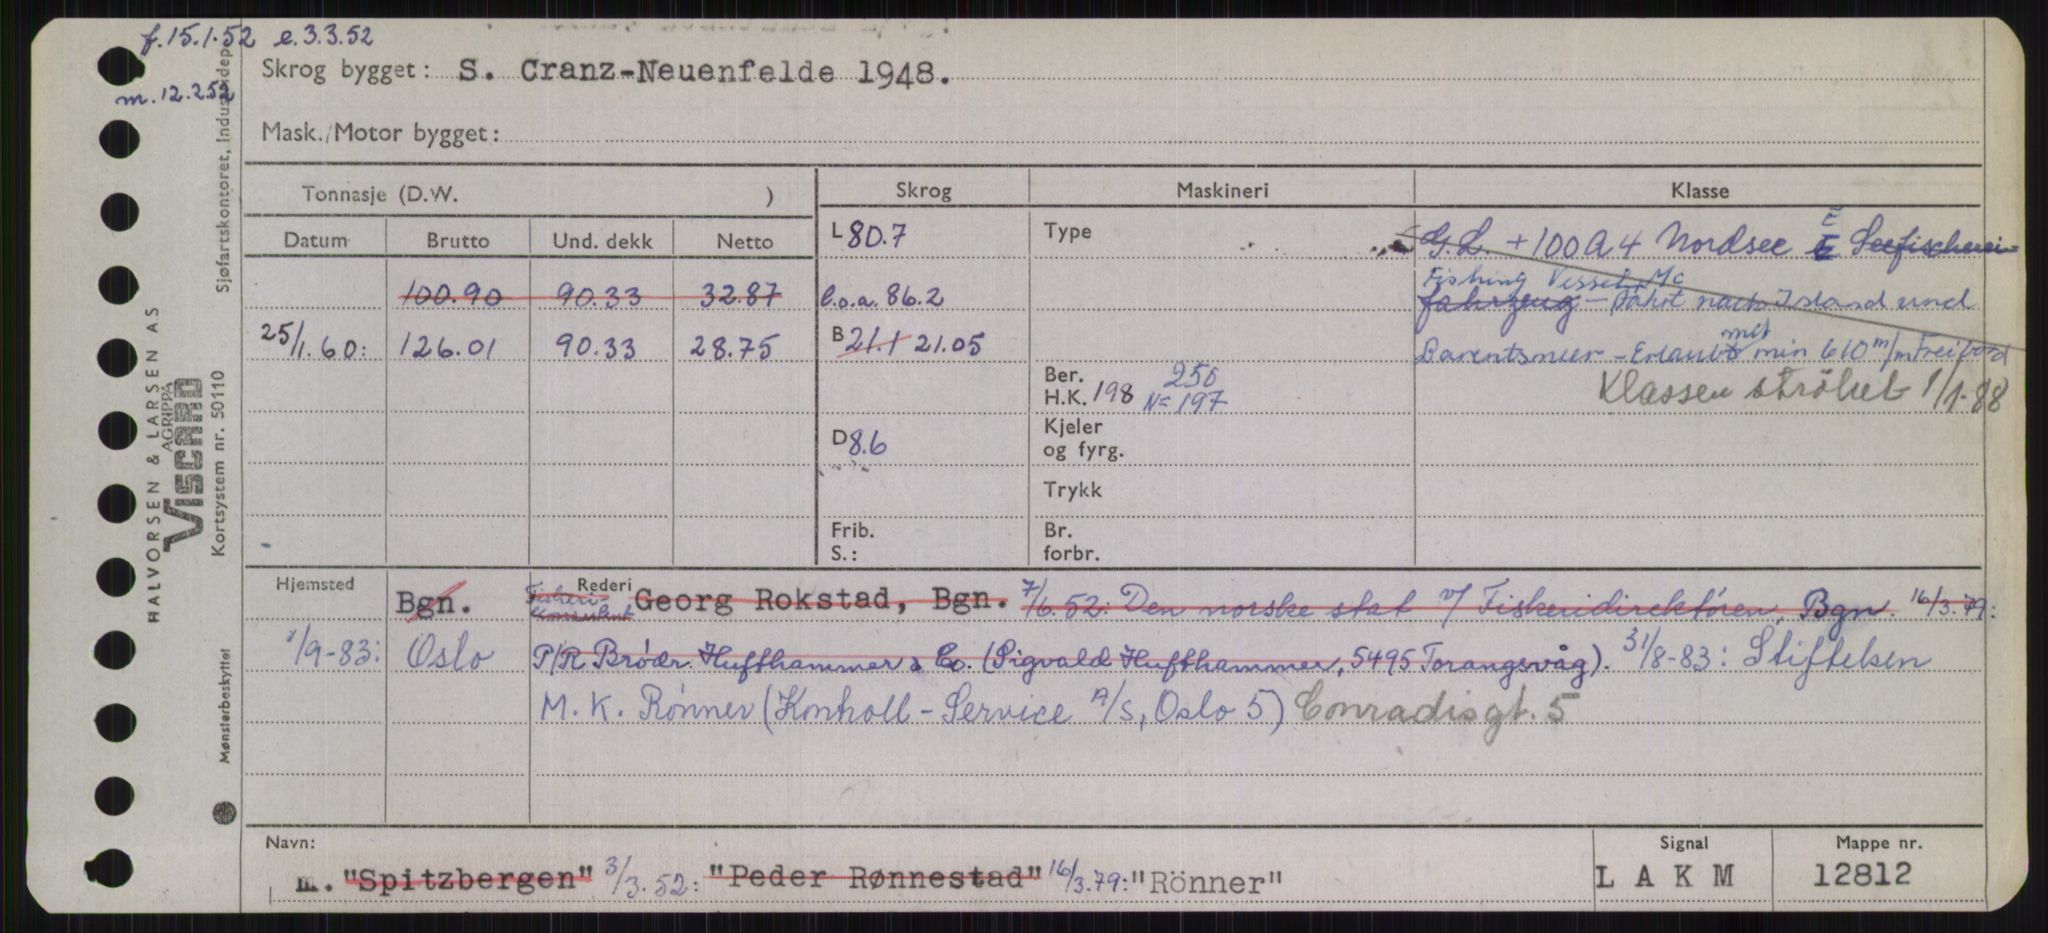 f.15.1.52 e.3.3.52
m.12.2.52
Skrog bygget: S. Cranz-Neuenfelde 1948.
Mask./Motor bygget:
Tonnasje (D.W. )
Skrog Maskineri Klasse
Datum Brutto Und. dekk Netto
L 80.7 Type G.L. +100A4 Nordsee E Seefischerei-
100.90 90.33 32.87 l.o.a. 86.2 Fishing Vessel, Mc
fahrzeug - Fahrt nach Island und
25/1.60: 126.01 90.33 28.75 B 21.1 21.05 Barentsmeer - Erlaubt mit min 610 m/m Freibord
Ber. H.K. 198 250 N=197 Klassen strøket 1/1.88
D 8.6 Kjeler
og fyrg.
Trykk
Frib. Br.
S.: forbr.
Hjemsted Rederi
Bgn. Fisheri-konsulent Georg Rokstad, Bgn. 7/6.52: Den norske stat v/ Fiskeridirektøren, Bgn. 16/3.79:
1/9-83: Oslo P/R Brødr. Hufthammer & Co. (Sigvald Hufthammer, 5495 Torangsvåg). 31/8-83: Stiftelsen
M. K. Rønner (Kontroll-Service A/S, Oslo 5) Conradisgt. 5
Navn: Signal Mappe nr.
m. "Spitzbergen" 3/3.52: "Peder Rønnestad" 16/3.79: "Rönner" L A K M 12812
HALVORSEN & LARSEN AS
AGRIPPA
VISCARD
Kortsystem nr. 50110
Sjøfartskontoret, Industridep.
Mønsterbeskyttet